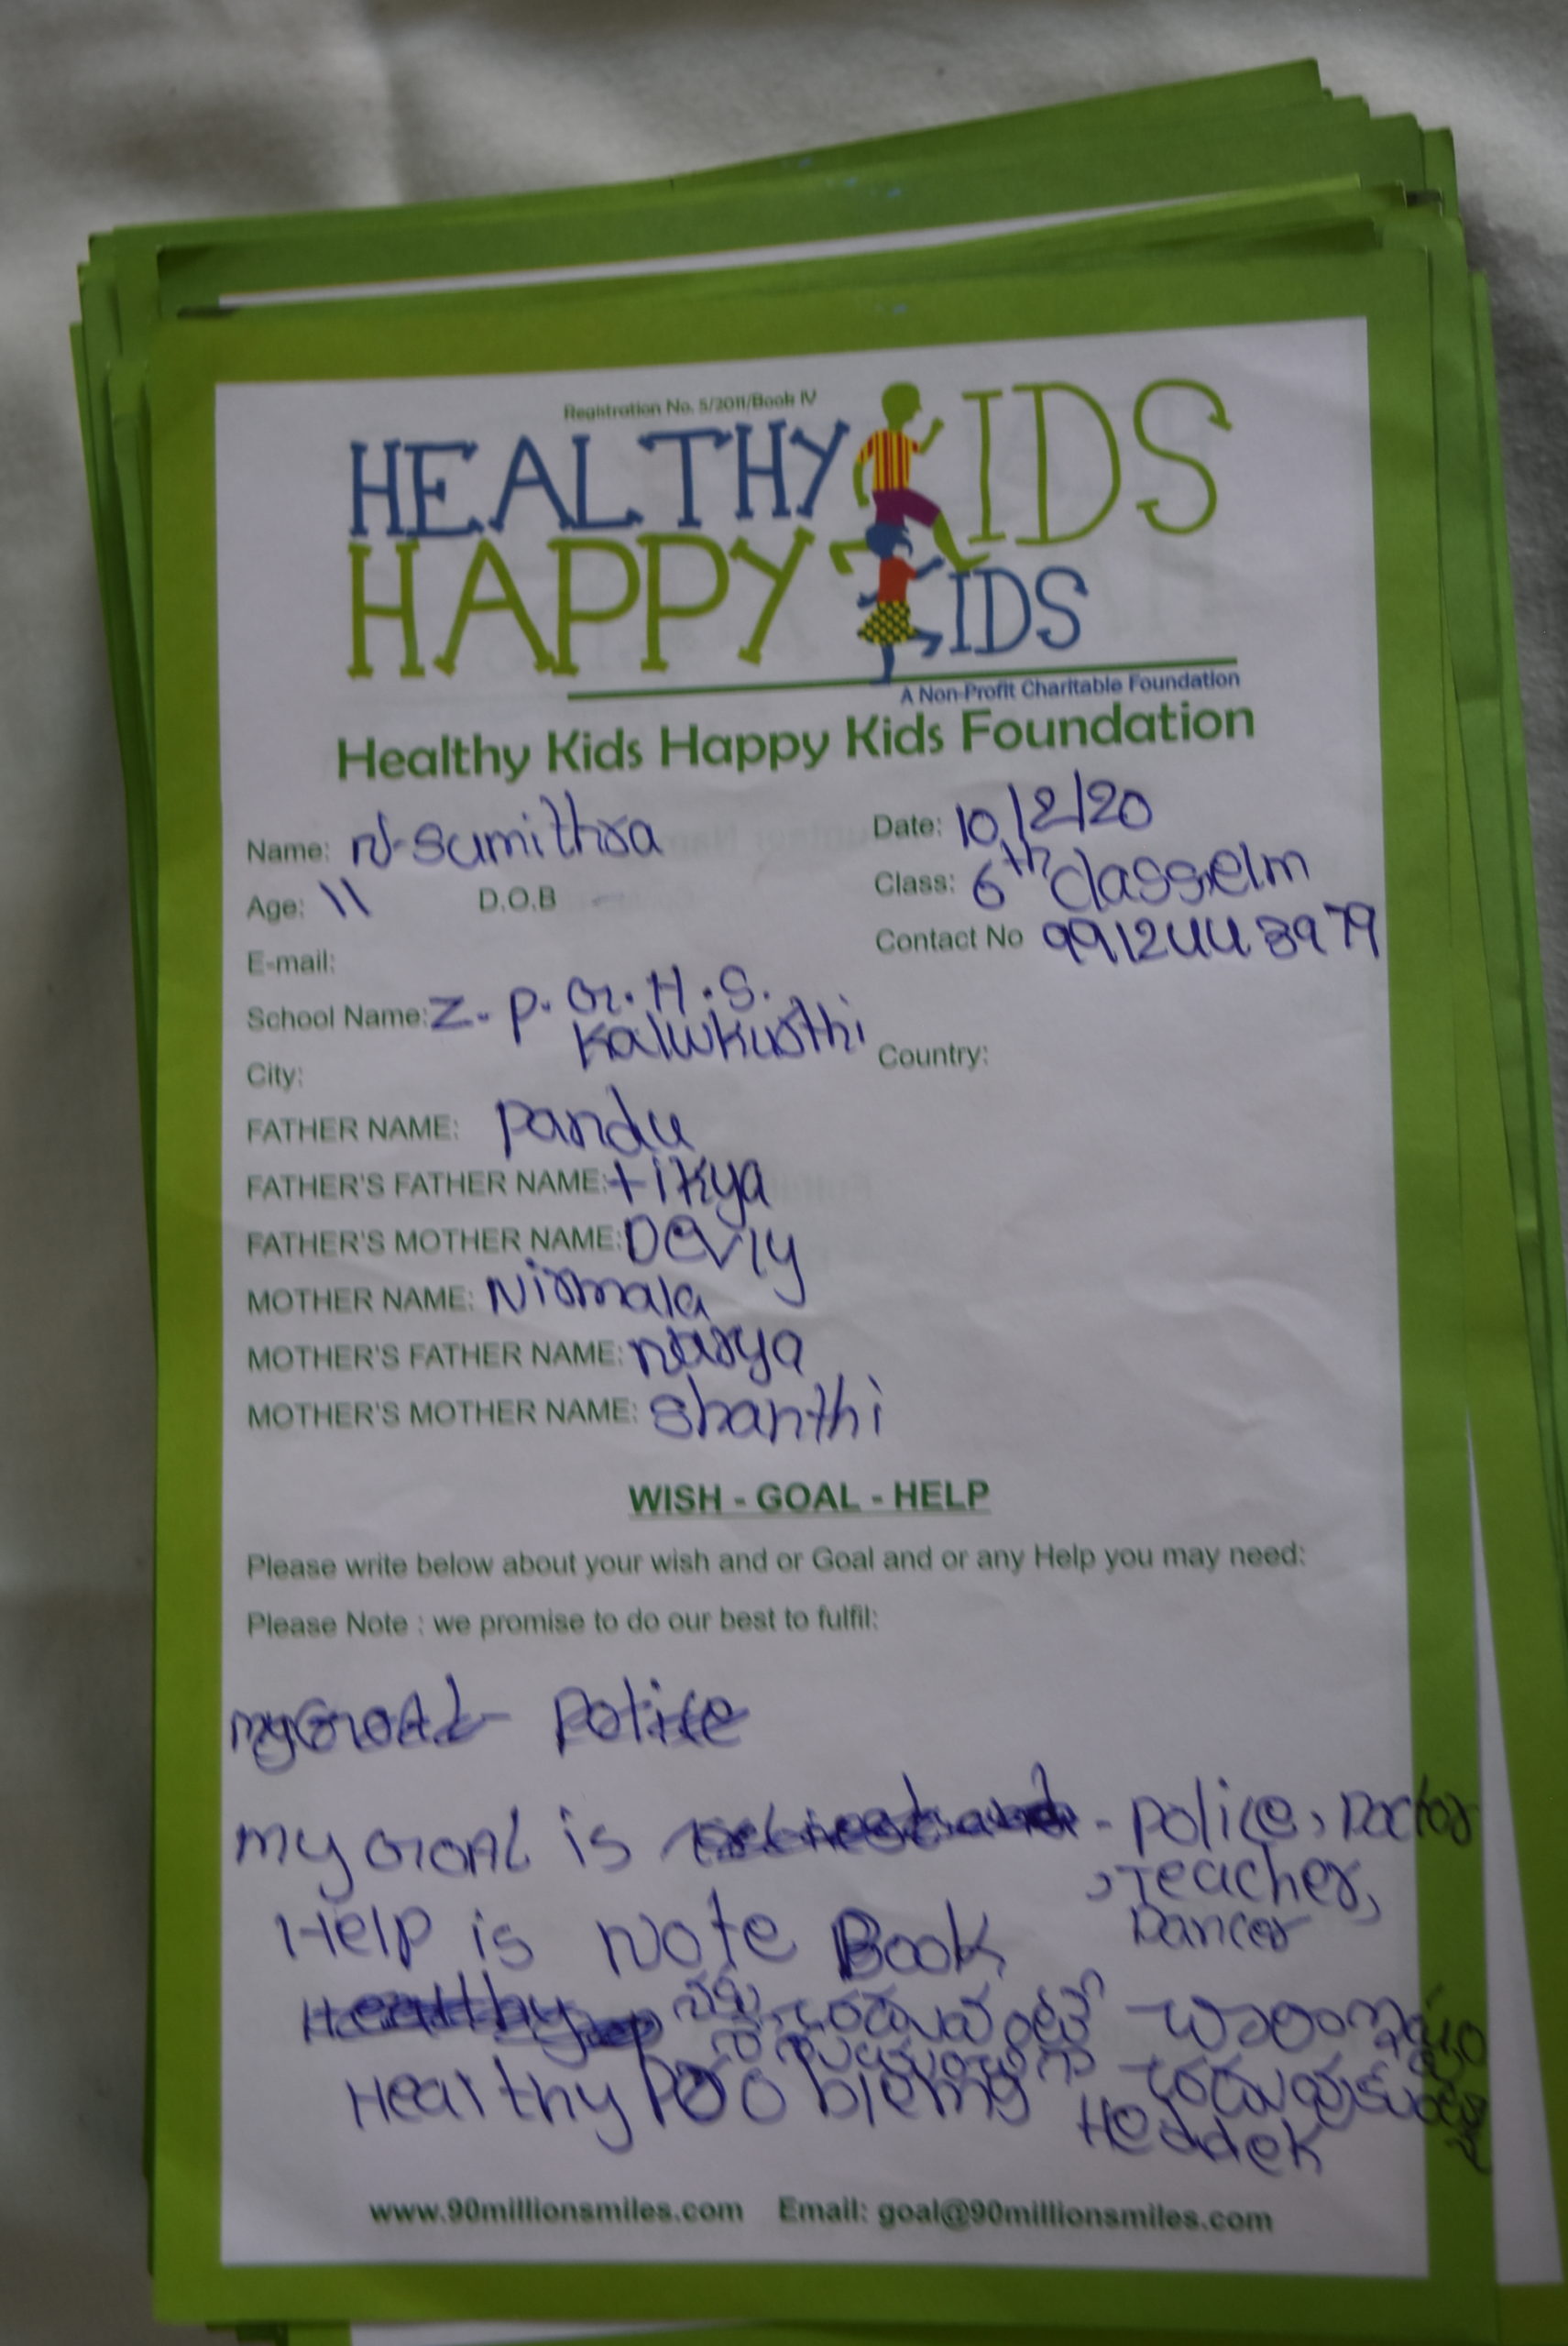 Registration No. 5/2011/Book IV
HEALTHY KIDS
HAPPY KIDS
A Non-Profit Charitable Foundation
Healthy Kids Happy Kids Foundation
Name: N. Sumithra
Date: 10/2/20
Age: 11 D.O.B
Class: 6th class,elm
E-mail:
Contact No 9912448979
School Name: Z. P. G. H. S.
Kalwkurthi
City: Country:
FATHER NAME: Pandu
FATHER'S FATHER NAME: tikya
FATHER'S MOTHER NAME: Devly
MOTHER NAME: Nirmala
MOTHER'S FATHER NAME: narya
MOTHER'S MOTHER NAME: Shanthi
WISH - GOAL - HELP
Please write below about your wish and or Goal and or any Help you may need:
Please Note : we promise to do our best to fulfil:
my GOAL - Police
my GOAL is - police, Doctor
, Teacher,
Dancer
Help is Note Book
Healthy
Healthy Problems
Heddek
www.90millionsmiles.com Email: goal@90millionsmiles.com